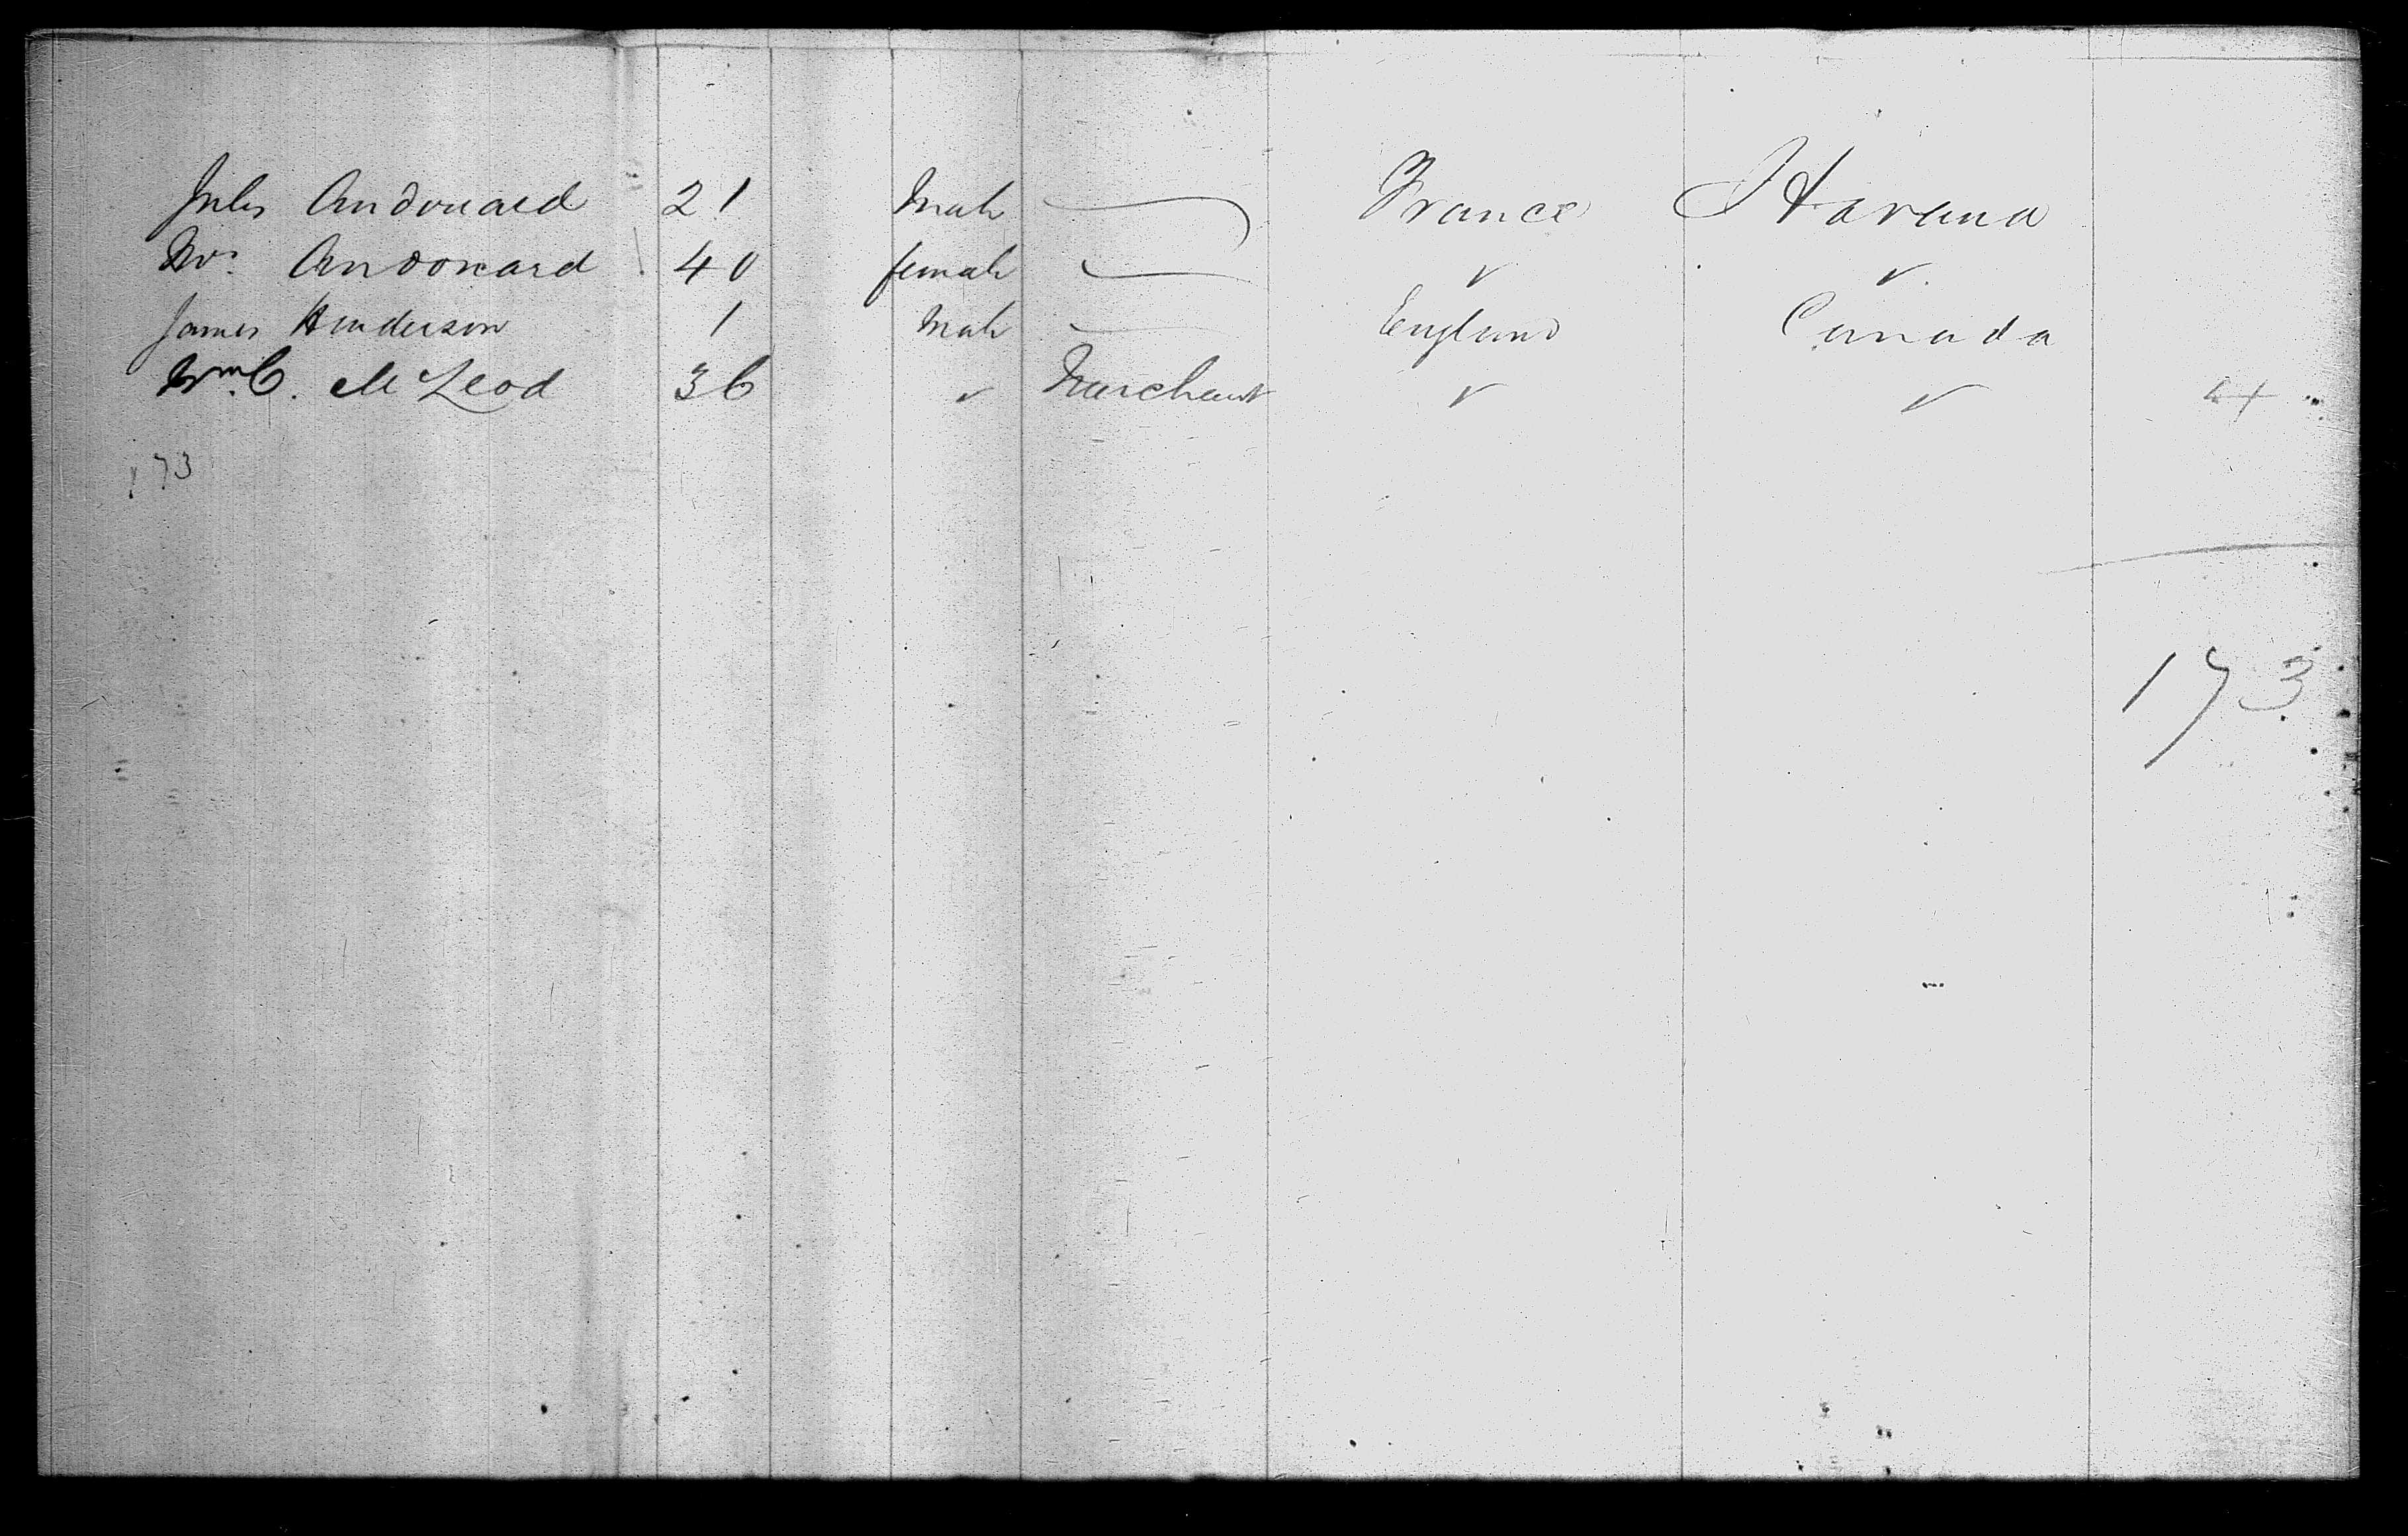 Jules Andouard 21 Male — France Havana
Mrs. Andouard 40 female — ✓ ✓
James Henderson 1 Male — England Canada
Wm. C. McLeod 36 ✓ Merchant ✓ ✓
173
173